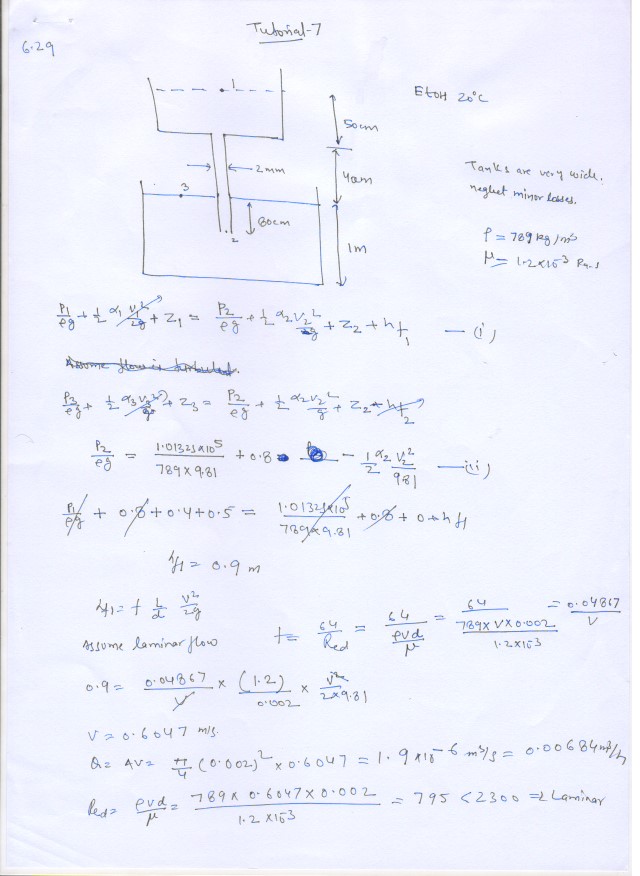 Tutorial-7
6.29
1
EtOH 20°C
50cm
2mm
40cm
Tanks are very wide.
neglect minor losses.
3
80cm
2
1m
ρ = 789 kg/m³
μ = 1.2×10⁻³ Pa-s
P₁/ρg + 1/2 α₁ V₁²/2g + Z₁ = P₂/ρg + 1/2 α₂ V₂²/g + Z₂ + hf₁ — (i)
Assume flow is turbulent.
P₃/ρg + 1/2 α₃ V₃²/g + Z₃ = P₂/ρg + 1/2 α₂ V₂²/g + Z₂ + hf₂
P₂/ρg = 1.01325×10⁵/789×9.81 + 0.8 - 1/2 α₂ V₂²/9.81 — (ii)
P₁/ρg + 0.8 + 0.4 + 0.5 = 1.01325×10⁵/789×9.81 + 0.8 + 0 + hf1
hf1 = 0.9 m
hf1 = f L/d V²/2g
Assume laminar flow f = 64/Red = 64/ρvd/μ = 64/789×V×0.002/1.2×10⁻³ = 0.04867/V
0.9 = 0.04867/V × (1.2)/0.002 × V²/2×9.81
V = 0.6047 m/s.
Q = AV = π/4 (0.002)² × 0.6047 = 1.9×10⁻⁶ m³/s = 0.00684 m³/h
Red = ρvd/μ = 789×0.6047×0.002/1.2×10⁻³ = 795 < 2300 => Laminar